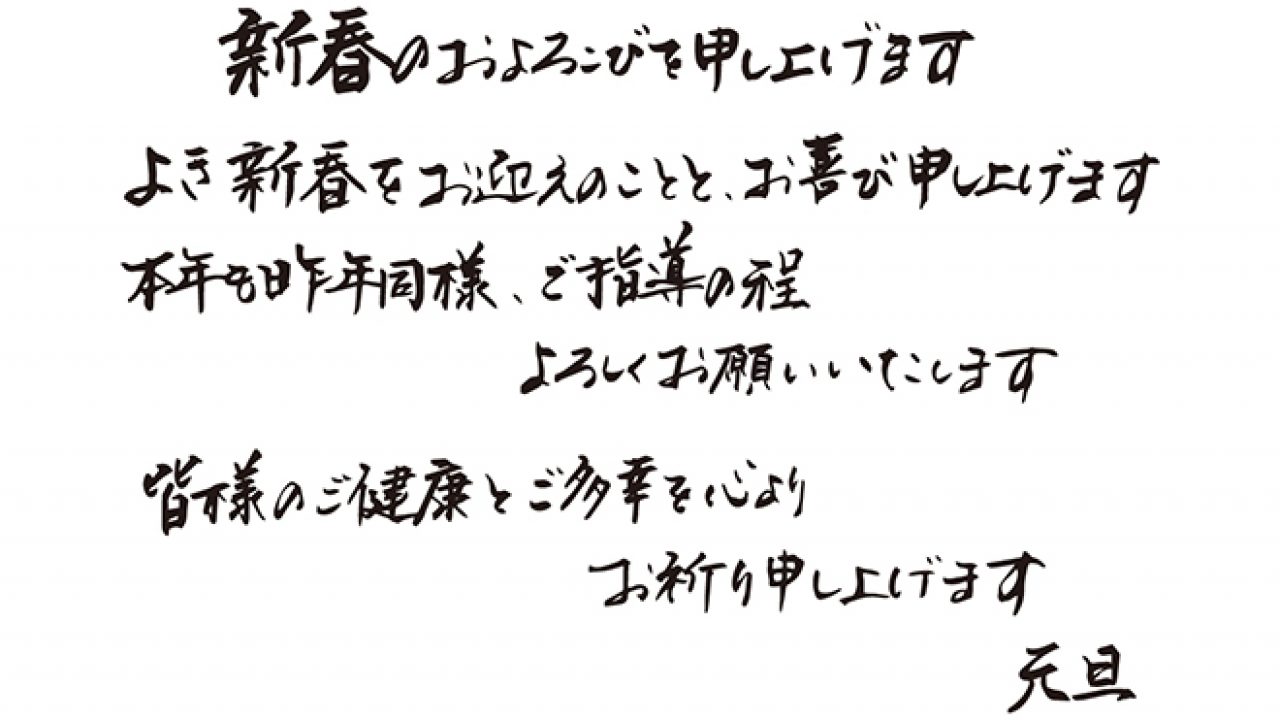 新春のおよろこびを申し上げます
よき新春をお迎えのことと、お喜び申し上げます
本年も昨年同様、ご指導の程
よろしくお願いいたします
皆様のご健康とご多幸を心より
お祈り申し上げます
元旦